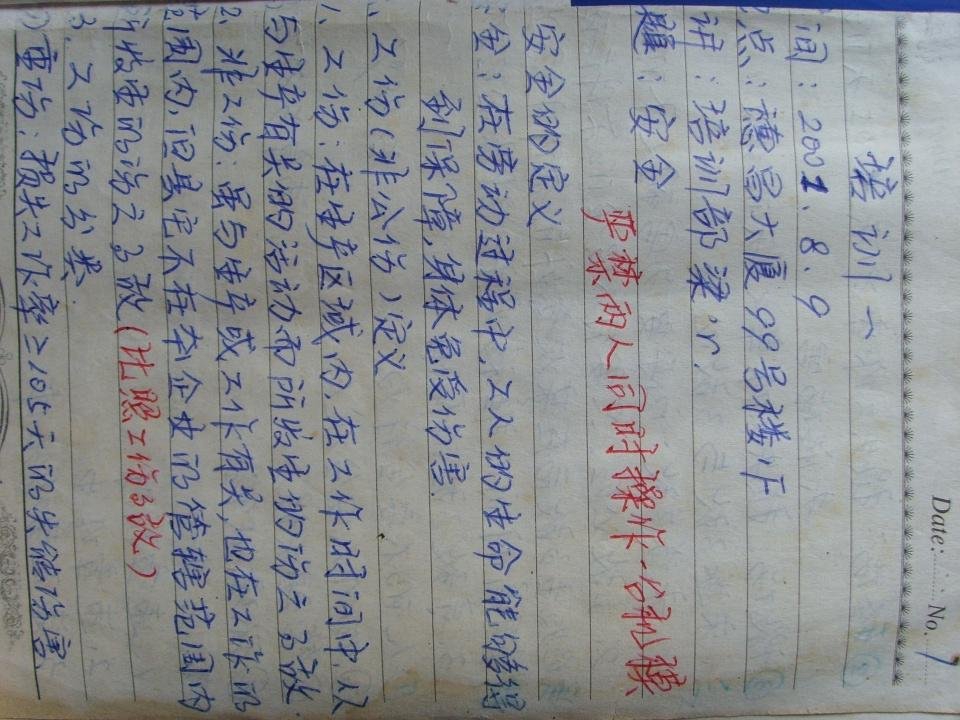 Date: No. 1
培训一
间：2001.8.9
点：穗昌大厦99号楼下
讲：培训部梁
题：安全
严禁两人同时操作一台机械
安全的定义
全：在劳动过程中，工人的生命能够得
到保障，身体免受伤害.
、工伤（非公伤）定义
1、工伤：在生产区域内，在工作时间中，以
与生产有关的活动而所发生的伤亡事故.
2. 非工伤：虽与生产或工作有关，也在工作
范围内，但其定不在本企业的管辖范围内
所发生的伤亡事故（比照工伤事故）
3、工伤的分类
重伤：损失工作率≥105天的失能伤害